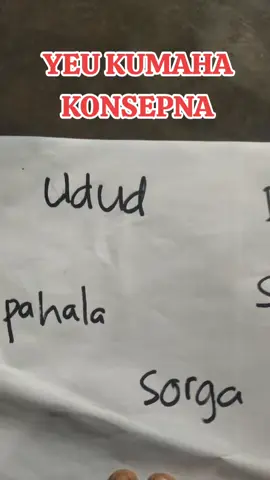 YEU KUMAHA
KONSEPNA
Udud
pahala
Sorga